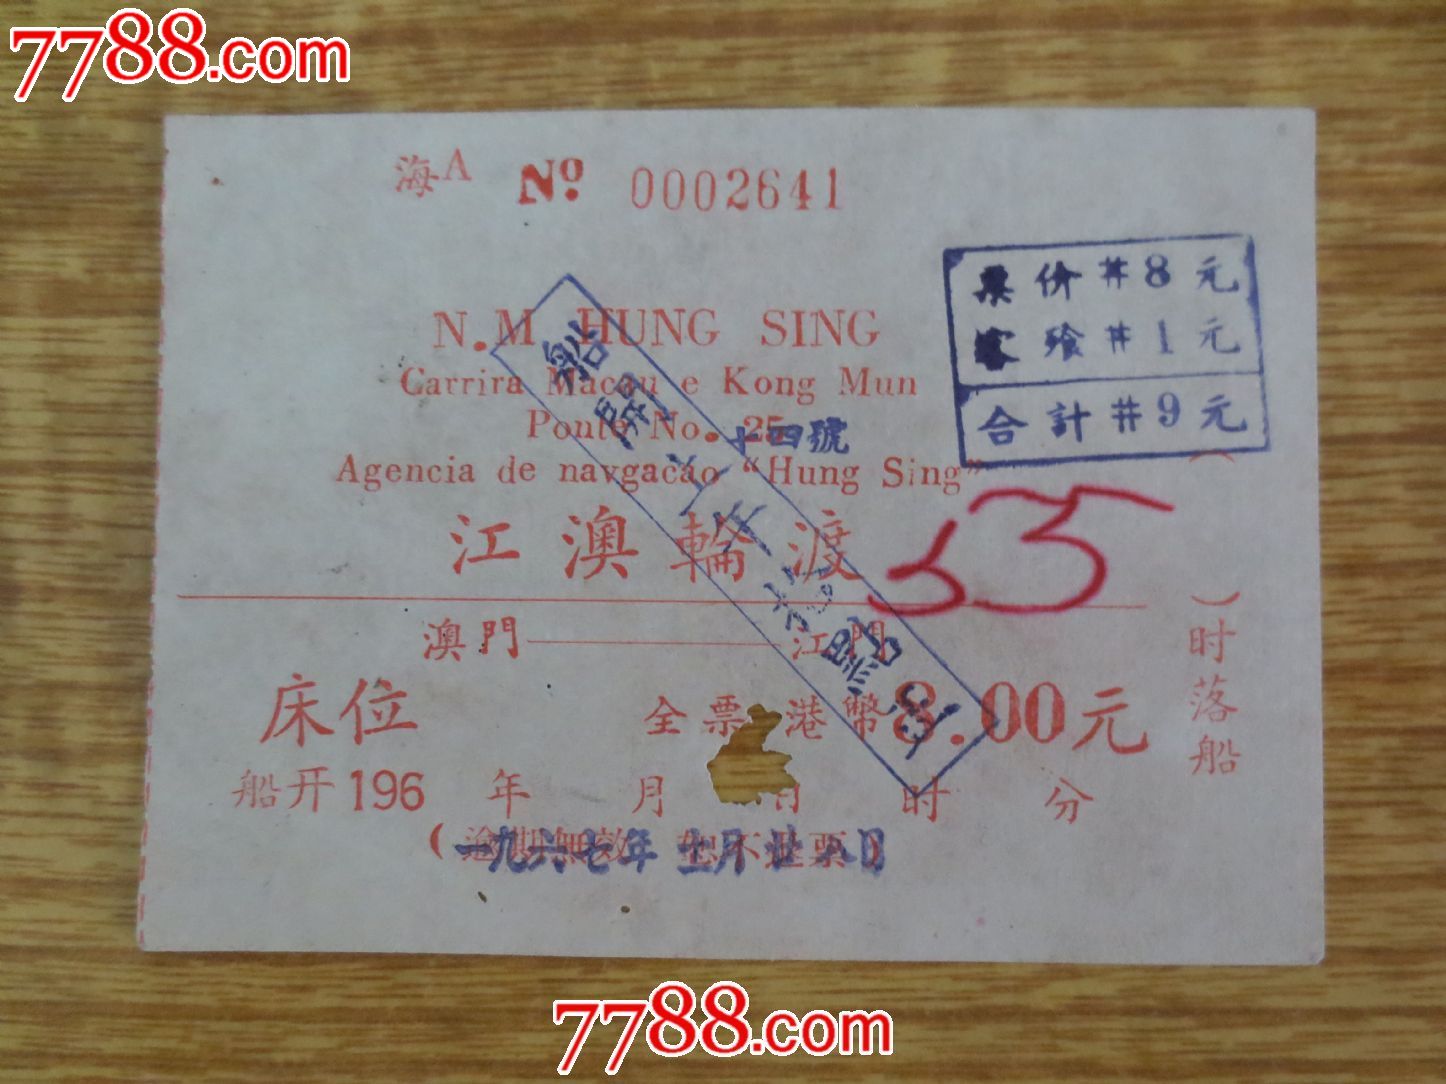 7788.com
海A No 0002641
票价#8元
客飧#1元
合計#9元
N.M HUNG SING
Carrira Macau e Kong Mun
Ponte No. 25
十四號
Agencia de navgacao "Hung Sing"
江澳輪渡
55
澳門——江門
床位 全票 港幣8.00元
船开196 年 月 日 时 分
(逾期無效 恕不退票)
一九六七年 月廿八日
)时落船
船開
7788.com